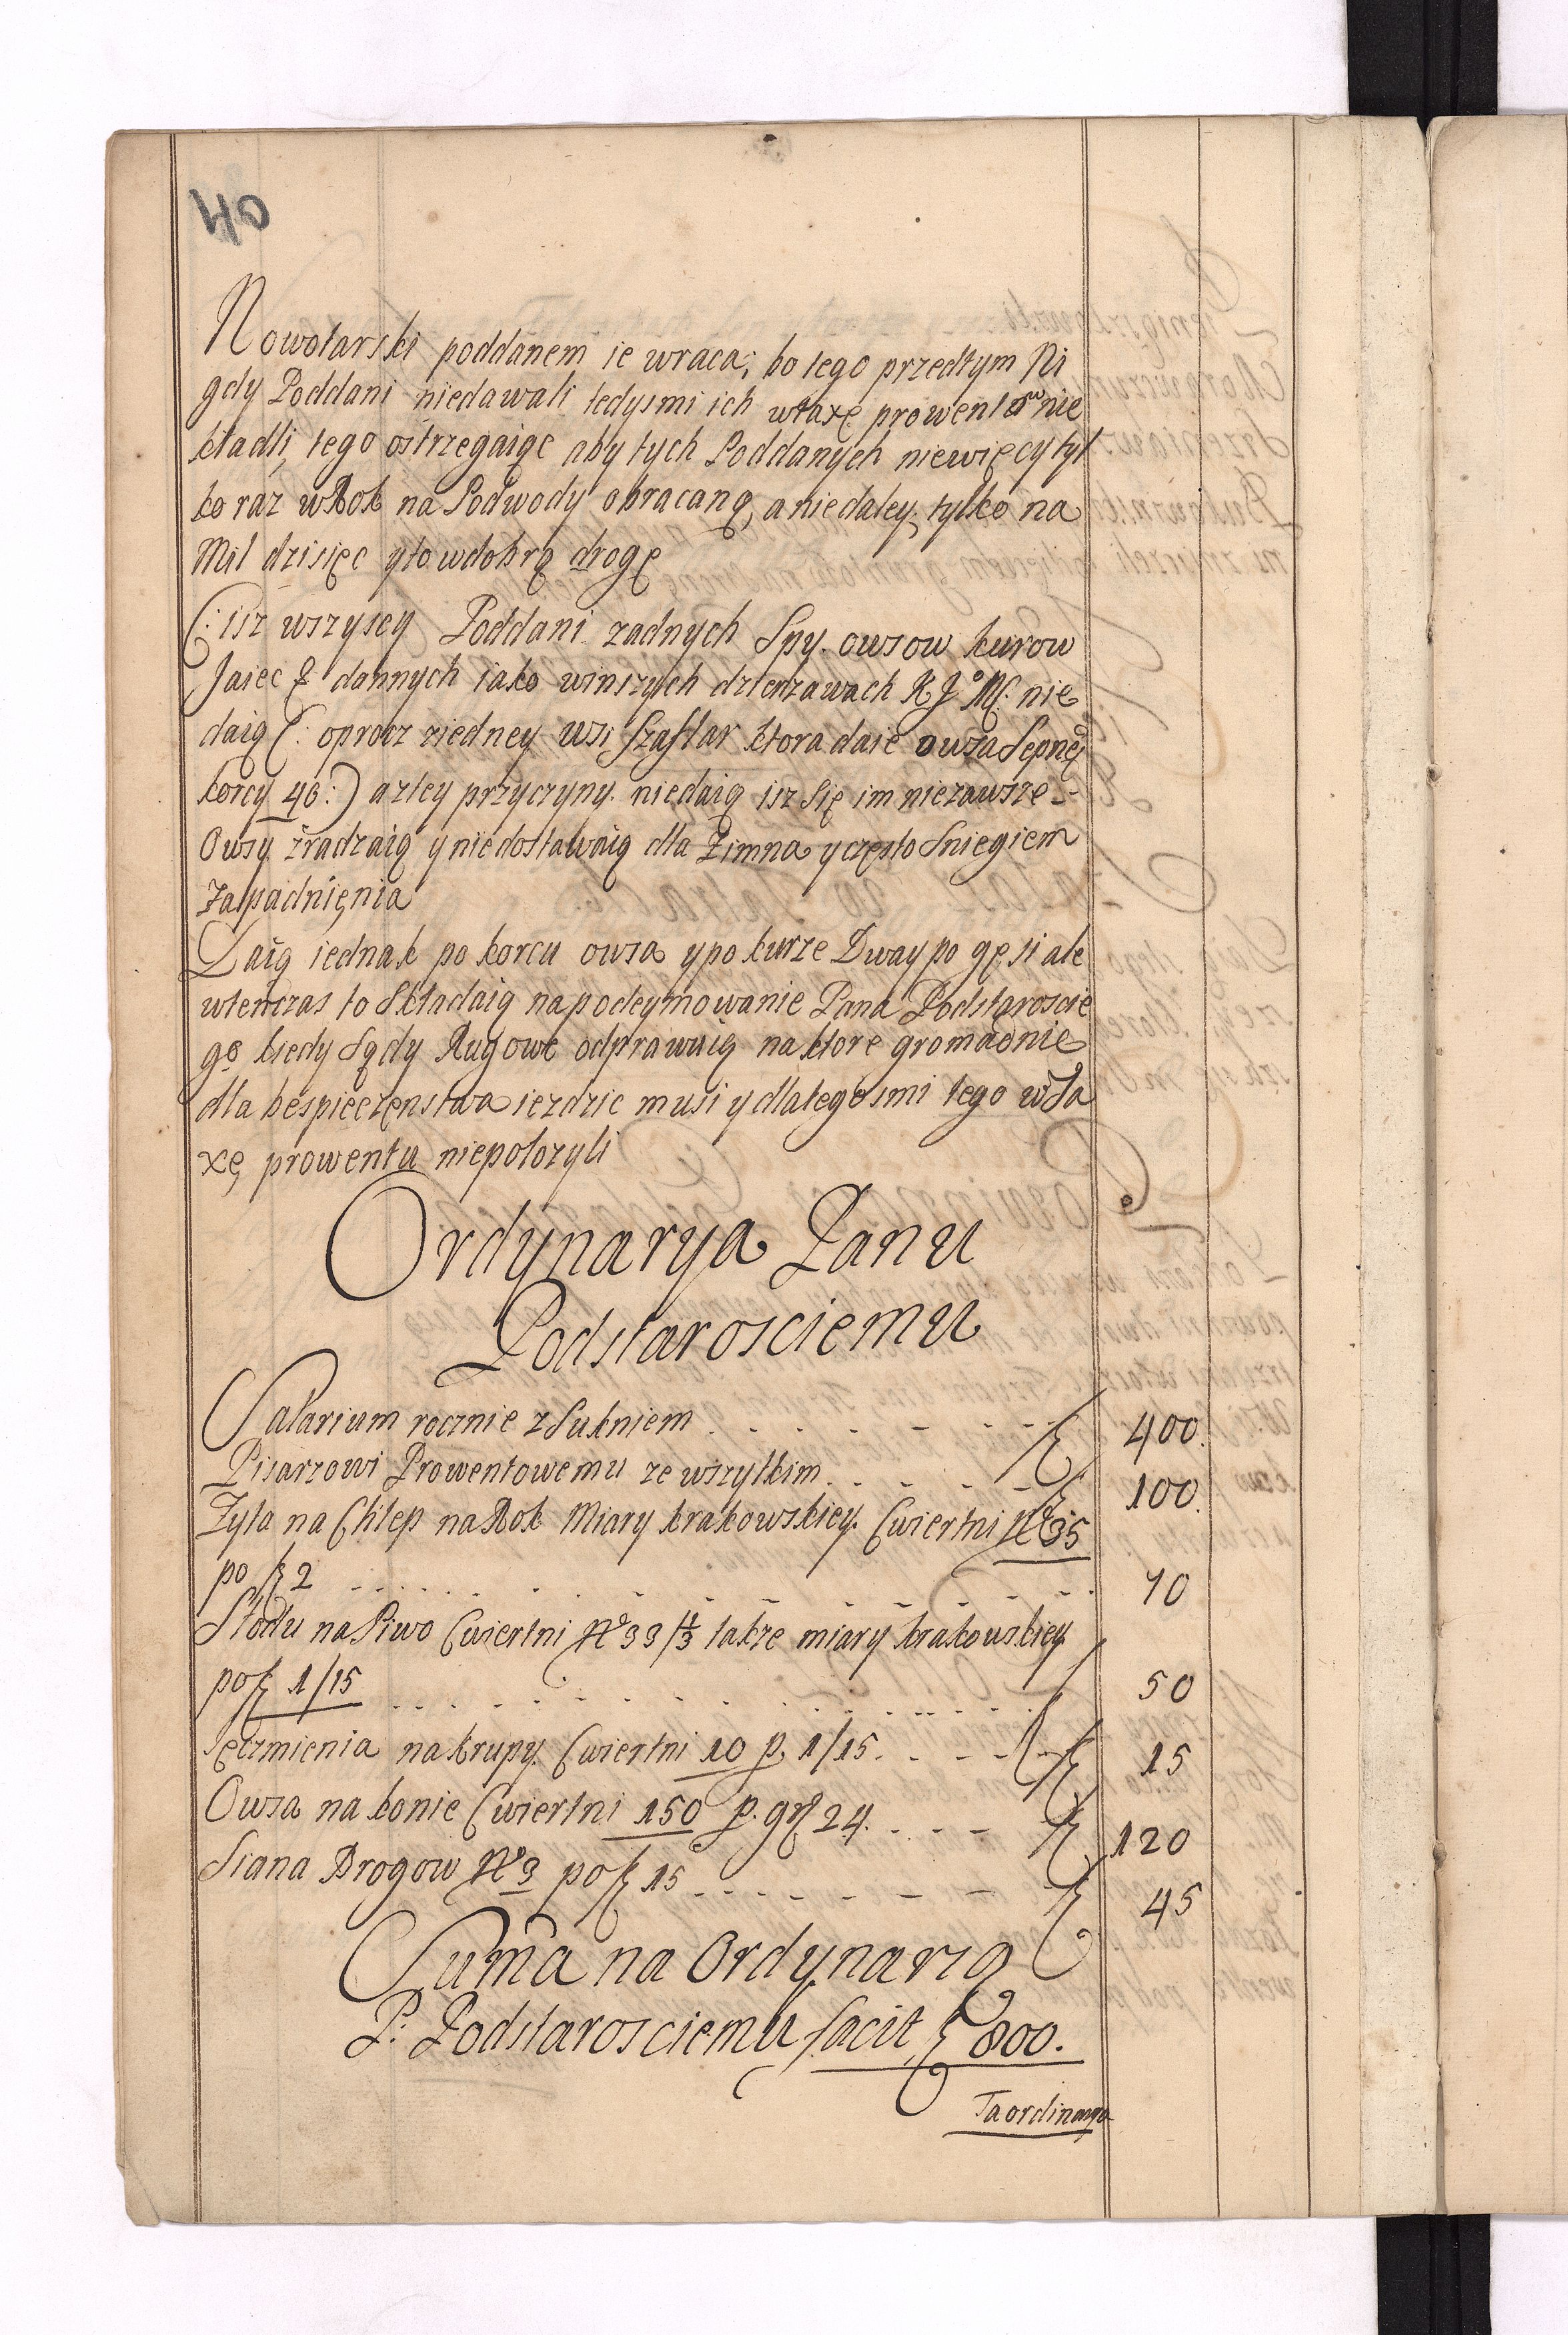 40
Nowotarski poddanem ie wraca; bo tego przedtym Ni
gdy Poddani niedawali tedysmi ich wtaxę prowentow nie
kładli, tego ostrzegaiąc aby tych Poddanych niewięcy tyl
ko raz wRok na Podwody obracaną, a niedaley, tylko na
Mil dzisięc yto wdobrą drogę
(: isz wszyscy Poddani zadnych Spy. owsow kurow
Jaiec & dannych iako winszych dzierzawach K J Mci nie
daią (: oprocz ziedney Wsi Szaflar ktora daie owsa Sepneý
korcy 46:) a ztey przyczyny niedaią isz Się im niezawsze
Owsy zradzaią y niedostawaią dla Zimna y często Sniegiem
Zapadnienia
Daią iednak po korcu owsa y po kurze Dway po gęsi ale
wtenczas to Składaią na podeymowanie Pana Podstaroscie
go kiedy Sądy Rugowe odprawuią na ktore gromadnie
dla bespieczenstwa iezdzic musi y dlategosmi tego wTa
xę prowentu niepołozyli
Ordynarya Panu
Podstarosciemu
Salarium rocznie zSukniem 400.
Pisarzowi Prowentowemu ze wszytkim 100.
Zyta na Chlep na Rok Miary krakowskiey Cwiertni No 35
po f 2 70
Słodu na Piwo Cwiertni No 33 1/3 takze miary krakowskiey
po f 1/15 50
Jęczmienia na krupy Cwiertni 10 p. 1/15. 15
Owsa na konie Cwiertni 150 p. gr 24. 120
Siana Brogow No 3 po f 15 45
Suma na Ordynarią
P: Podstarosciemu facit f 800.
Ta ordinarya